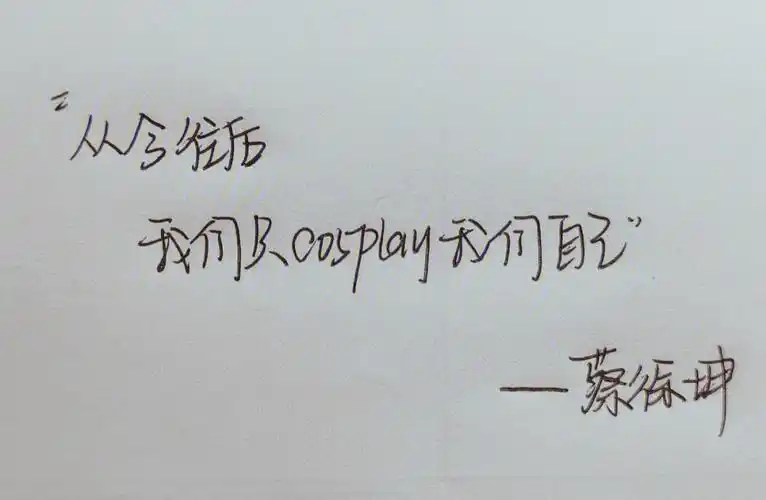 “从今往后
我们只cosplay我们自己”
——蔡徐坤